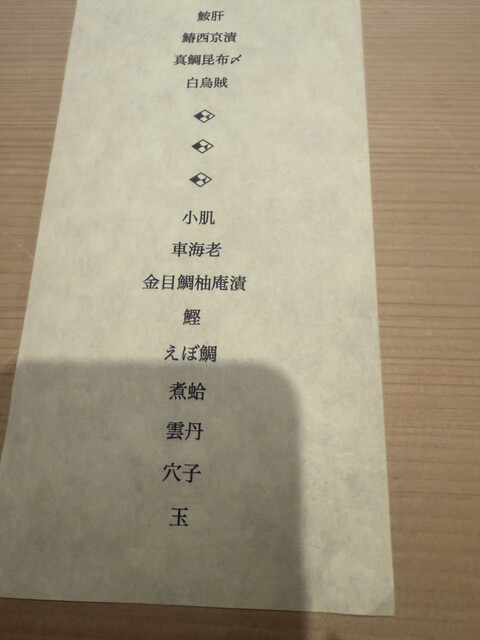 鮟肝
鰆西京漬
真鯛昆布〆
白烏賊
小肌
車海老
金目鯛柚庵漬
鰹
えぼ鯛
煮蛤
雲丹
穴子
玉